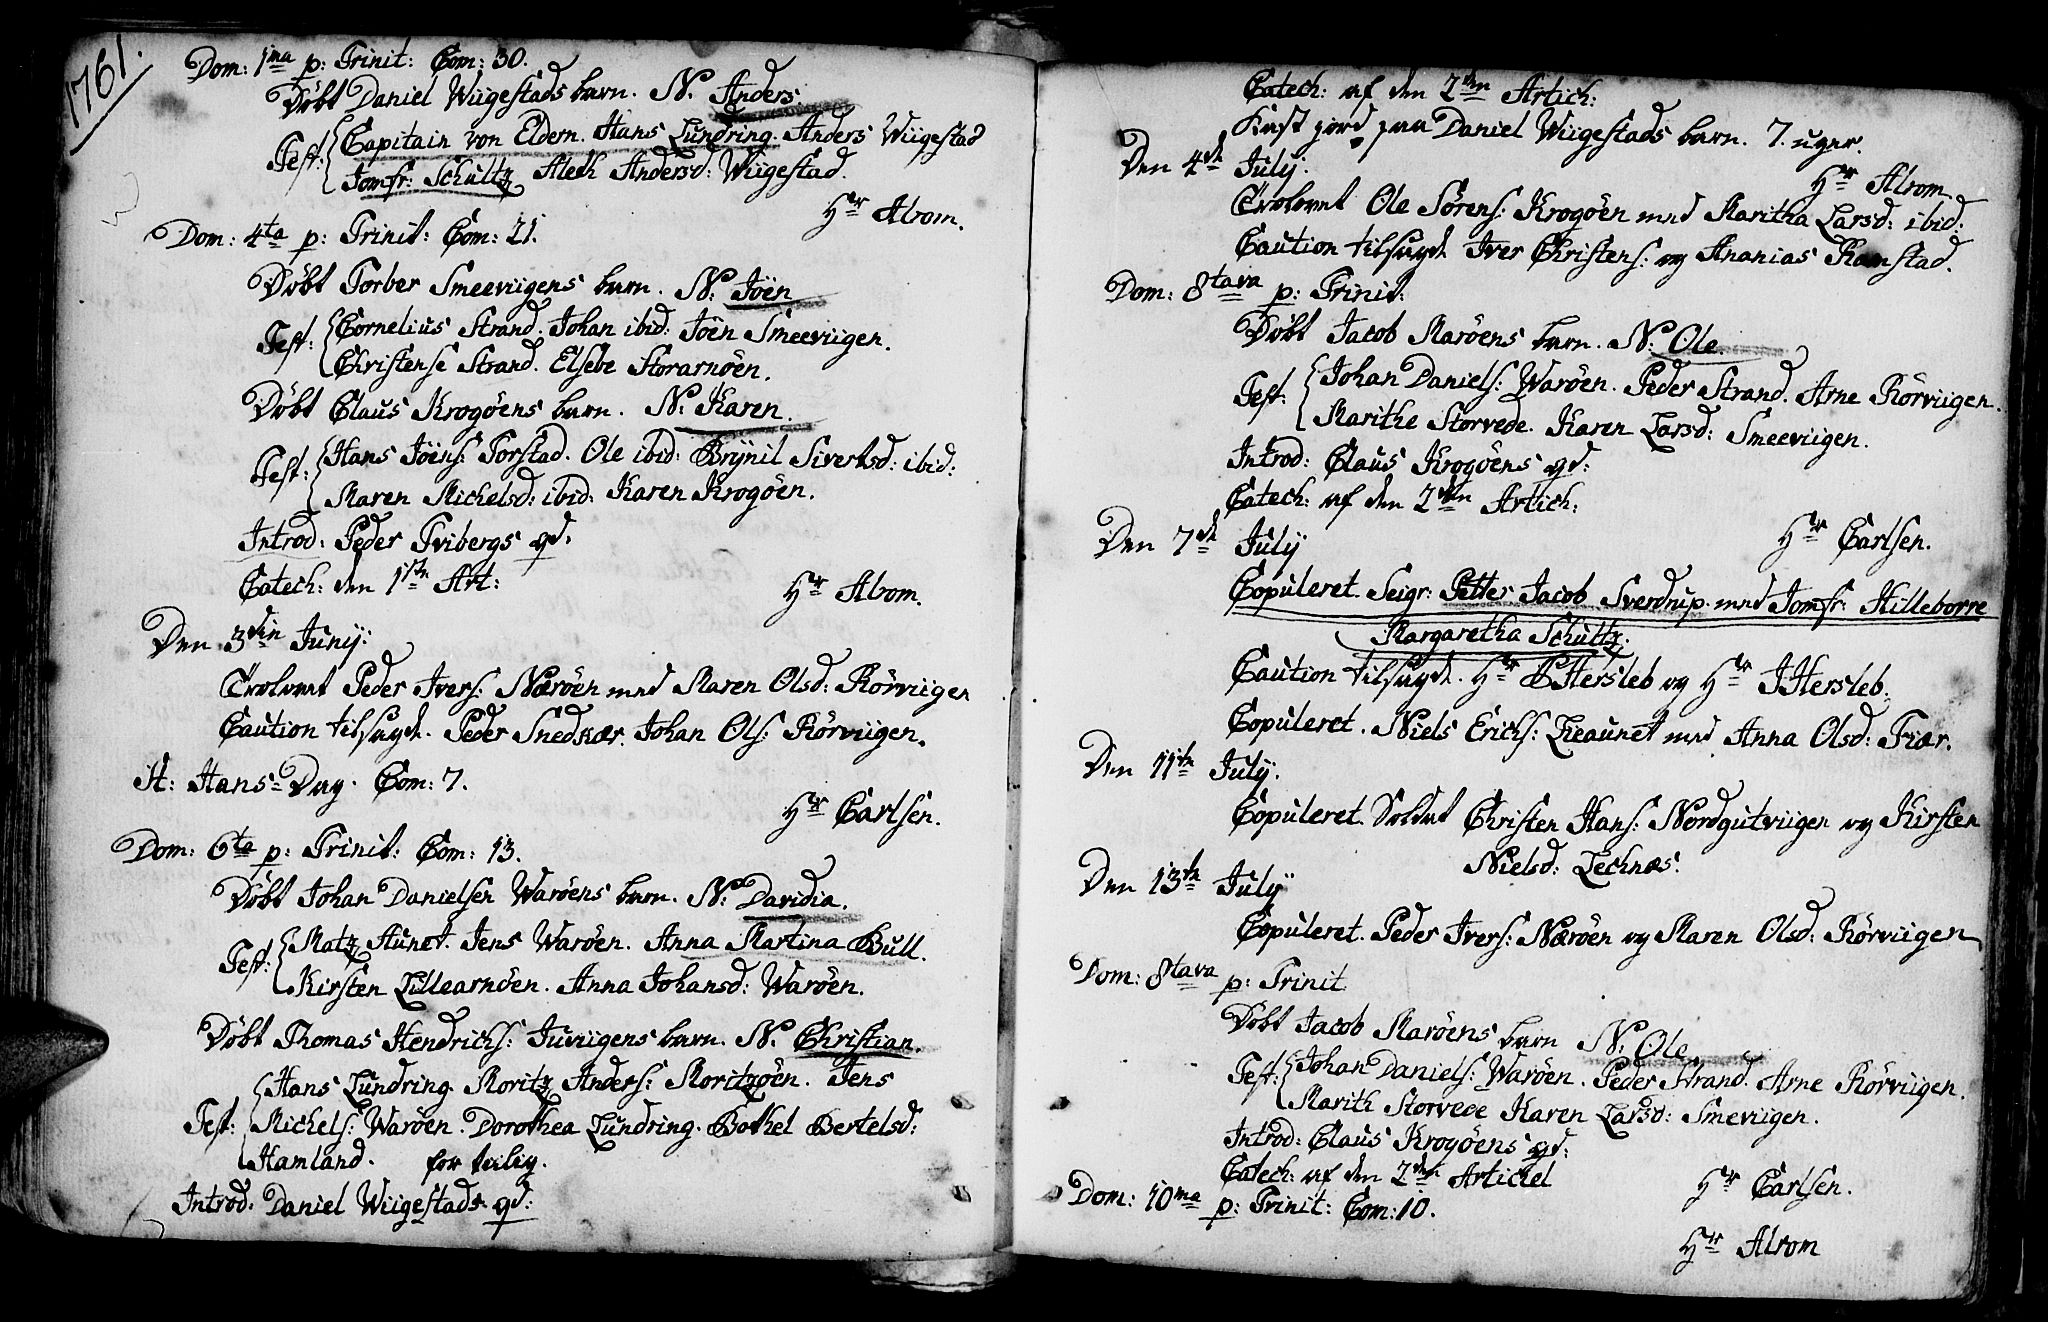 1761.
Dom: 1ma p: Trinit: Com: 30.
Döbt Daniel Wiigestads barn. N. Anders.
Test: Capitain von Eldern. Hans Lundring. Anders Wiigestad
Jomfr: Schultz Aleth Andersd: Wiigestad.
Hr Alrom.
Dom: 4ta p: Trinit: Com: 21.
Döbt Torber Smeeviigens barn. N: Jöen
Test: Cornelius Strand. Johan ibid: Jöen Smeeviigen.
Christense Strand. Elsebe Storarnöen.
Döbt Claus Krogöens barn. N: Karen.
Test: Hans Jöens: Torstad. Ole ibid: Brÿnil Sivertsd: ibid:
Maren Michelsd: ibid: Karen Krogöen.
Introd: Peder Tvibergs qd:
Catech: den 1ste Art:
Hr Alrom.
Den 3die Junij:
Trolovet Peder Ivers: Næröen med Maren Olsd: Rörviigen
Caution tilsagde. Peder Snedkær. Johan Ols: Rörviigen.
St: Hans Dag. Com: 7.
Hr Carlsen.
Dom: 6ta p: Trinit: Com: 13.
Döbt Johan Danielsen Waröens barn. N: Davidia.
Test: Matz Aunet. Jens Waröen. Anna Martina Bull.
Kirsten Lillearnöen. Anna Johansd: Waröen.
Döbt Thomas Hendrichs: Juviigens barn. N. Christian.
Hans Lundring Moritz Anders: Moritzöen. Jens
Test: Michels: Waröen. Dorothea Lundring. Bothel Bertelsd:
Hamland. for tilig.
Introd: Daniel Wiigestads qd:
Catech: af den 2den Artich:
Kast jord paa Daniel Wiigestads barn. 7. uger.
Den 4de July:
Hr Alrom
Trolovet Ole Sörens: Krogöen med Maritha Larsd: ibid:
Caution tilsagde Iver Christens: og Ananias Ramstad.
Dom: 8tava p: Trinit:
Döbt Jacob Maröens barn. N: Ole.
Test: Johan Daniels: Waröen. Peder Strand. Arne Rörviigen.
Marithe Storvede. Karen Larsd: Smeeviigen.
Introd: Claus Krogöens qd:
Catech: af den 2den Artich:
Hr Carlsen.
Den 7de July
Copuleret. Seigr: Petter Jacob Sverdrup med Jomfr: Hilleborre
Margaretha Schultz.
Caution tilsagde. Hr BHersleb og Hr JHersleb.
Copuleret. Niels Erichs: Leaunet med Anna Olsd: Fiær.
Den 11te July.
Copuleret. Soldat Christen Hans: Nordgutviigen og Kirsten
Nielsd: Lechnæs.
Den 13te July
Copuleret. Peder Ivers: Næröen og Maren Olsd: Rörviigen
Dom: 8tava p: Trinit
Döbt Jacob Maröens barn N: Ole
Test: Johan Daniels: Waröen. Peder Strand. Arne Rörviigen.
Marith Storvede Karen Larsd: Smeviigen.
Introd: Claus Krogöens qd:
Catech: af den 2den Artichel
Hr Carlsen.
Dom: 10ma p: Trinit: Com: 10.
Hr Alrom